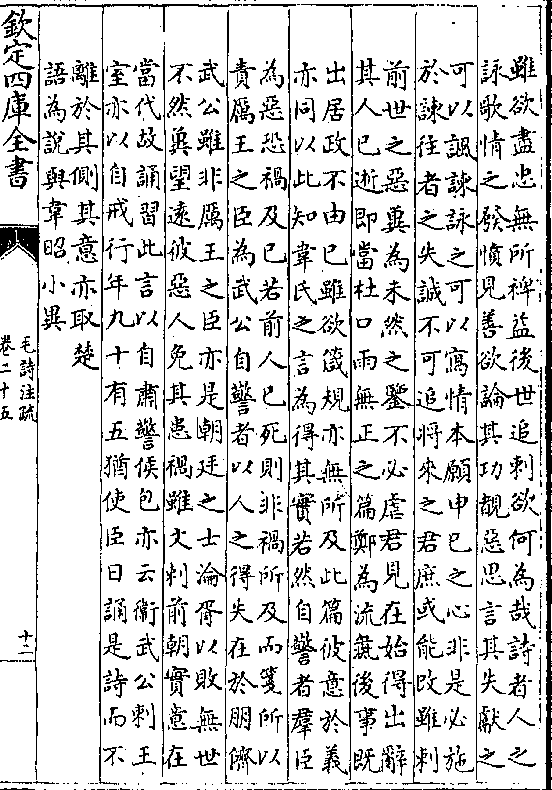 雖欲盡忠無所裨益後世追刺欲何為哉詩者人之
詠歌情之發憤見善欲論其功覩惡思言其失獻之
可以諷諫詠之可以寫情本願申已之心非是必施
於諫往者之失誠不可追將來之君庶或能改雖刺
前世之惡冀為未然之鑒不必虐君見在始得出辭
其人已逝即當杜口雨無正之篇鄭為流彘後事既
出居政不由已雖欲箴規亦無所及此篇彼意於義
亦同以此知韋氏之言為得其實若然自警者羣臣
為惡恐禍及已若前人已死則非禍所及而箋所以
責厲王之臣為武公自警者以人之得失在於朋儕
武公雖非厲王之臣亦是朝廷之士淪胥以敗無世
不然冀望遠彼惡人免其患禍雖文刺前朝實意在
當代故誦習此言以自肅警侯包亦云衛武公刺王
室亦以自戒行年九十有五猶使臣日誦是詩而不
離於其側其意亦取楚
語為說與韋昭小異
欽定四庫全書
毛詩注疏
卷二十五
十二